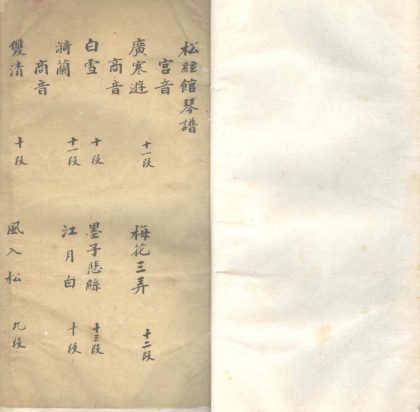 松絃館琴譜
宮音
廣寒遊 十一段 梅花三弄 十二段
商音
白雪 十段 墨子悲絲 十三段
漪蘭 十一段 江月白 十段
商音
雙清 十段 風入松 九段